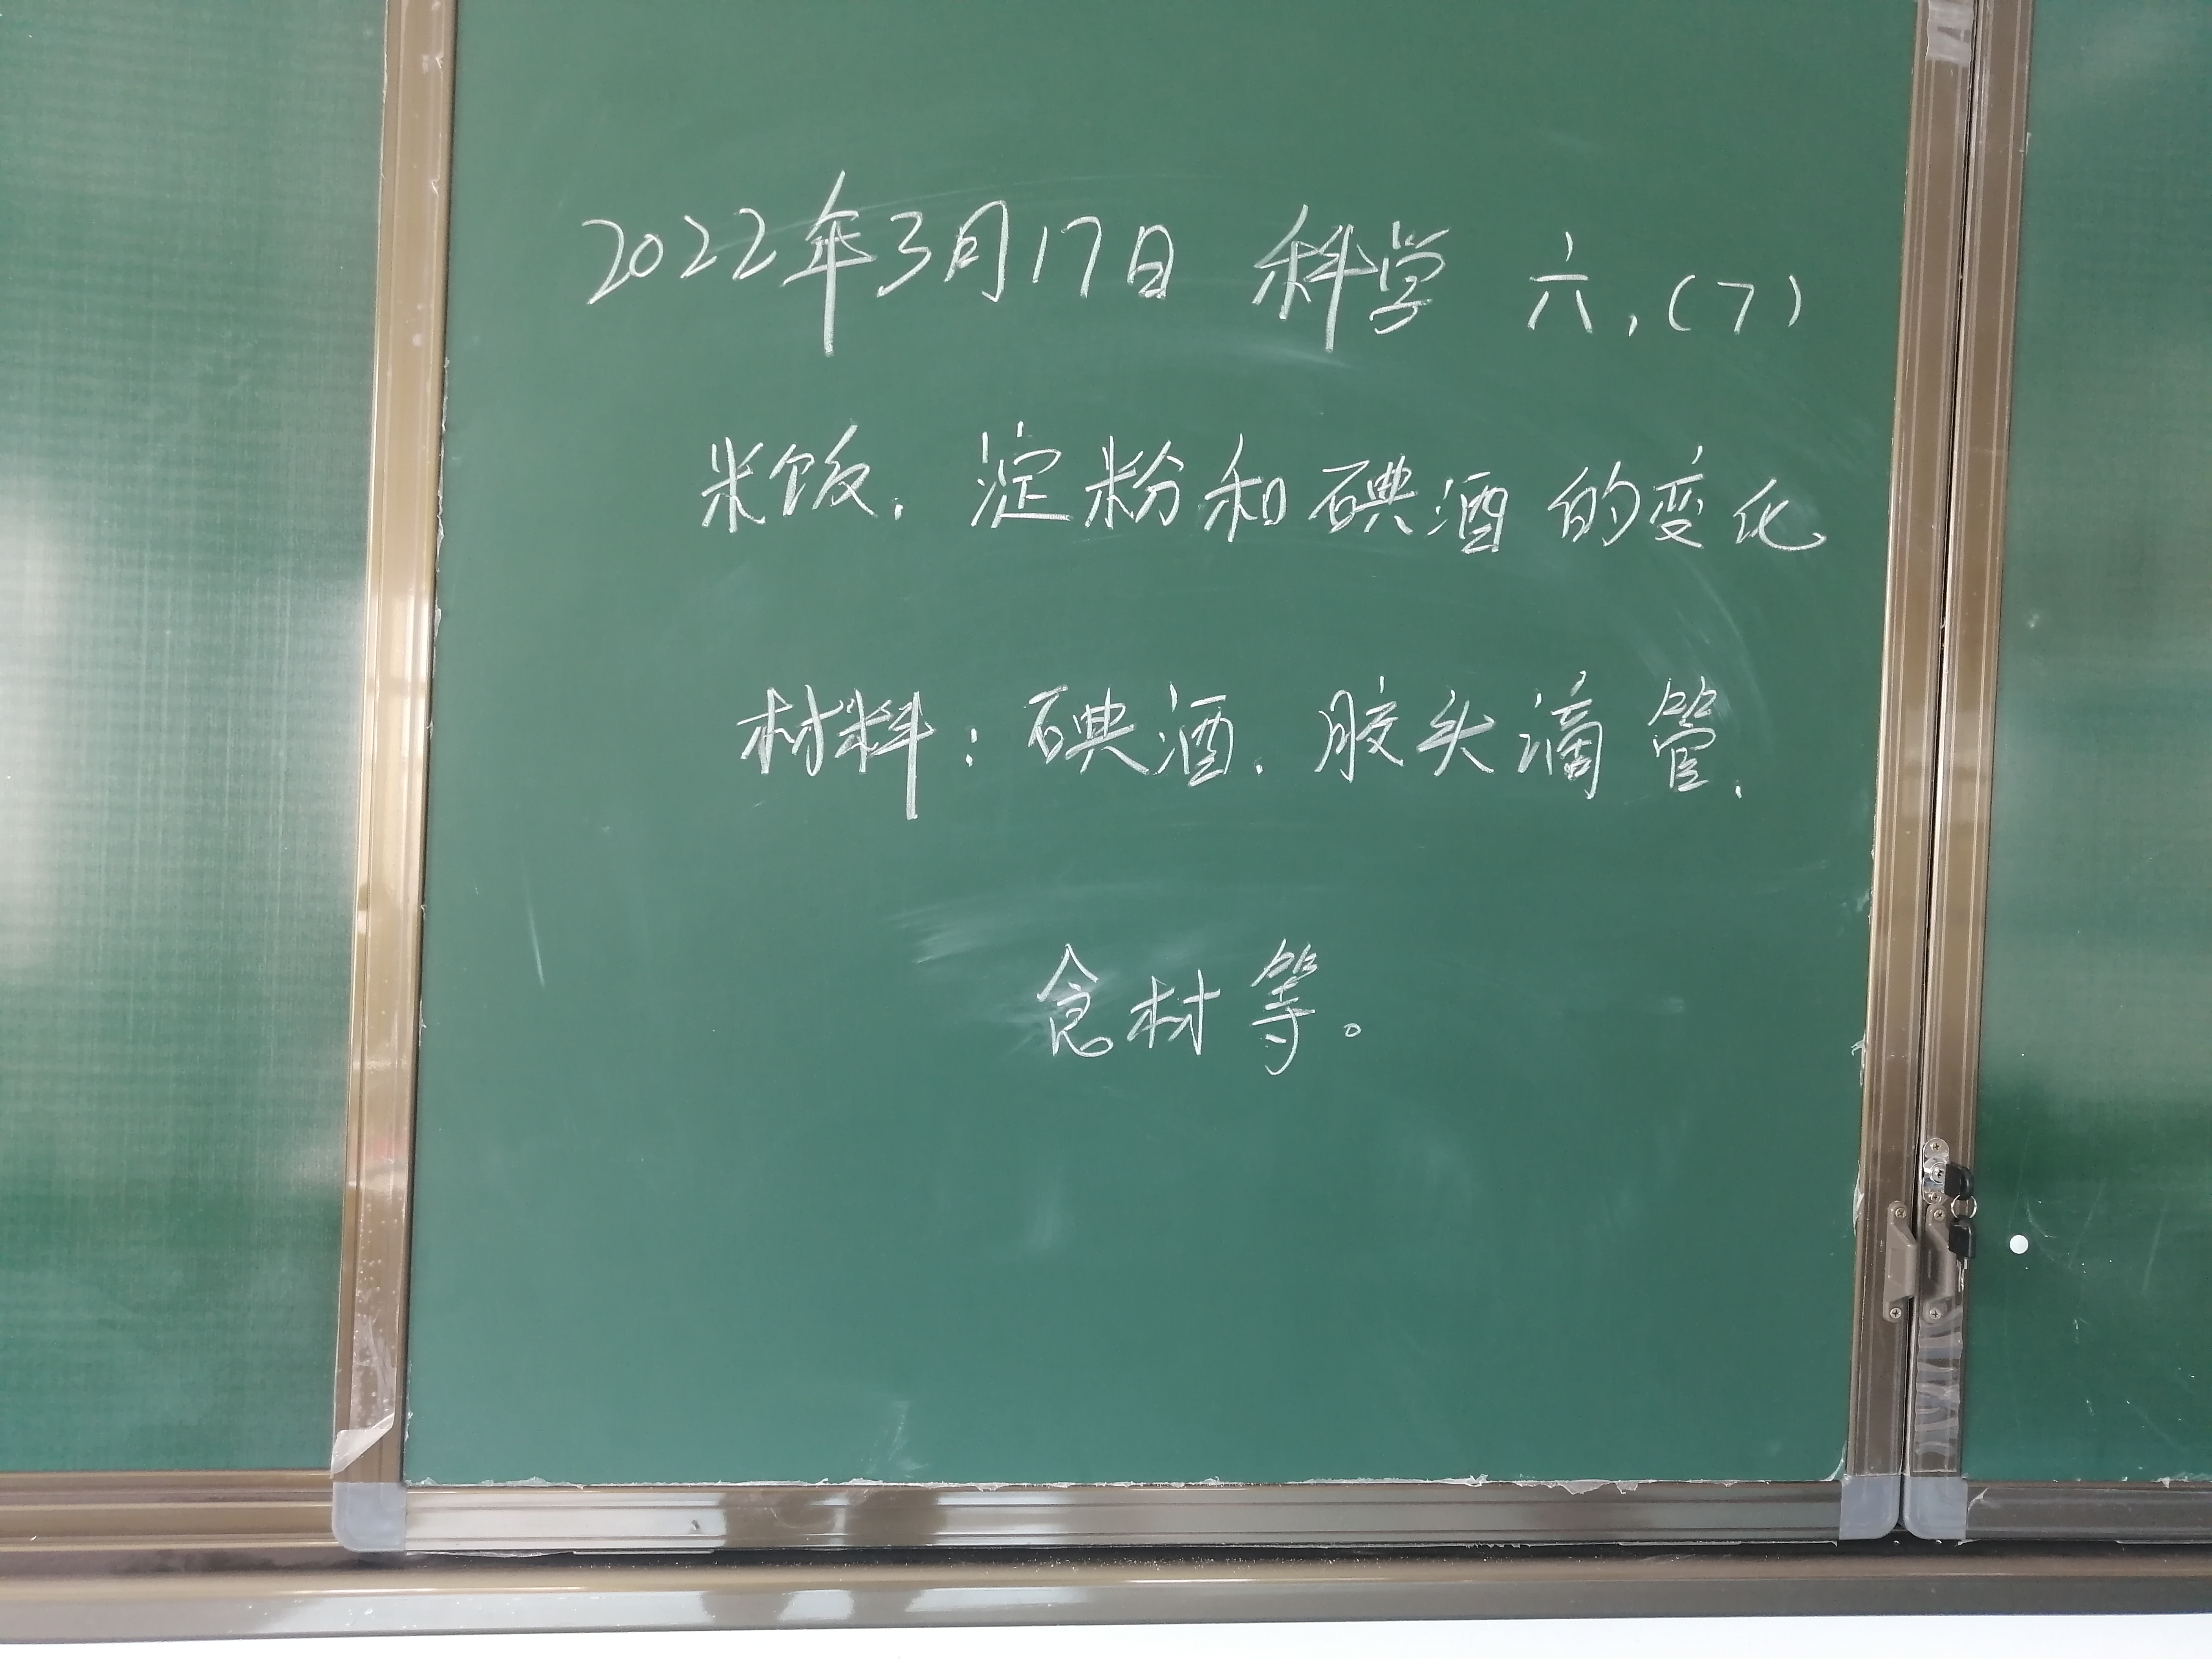 2022年3月17日 科学 六.(7)
米饭.淀粉和碘酒的变化
材料:碘酒.胶头滴管.
食材等。